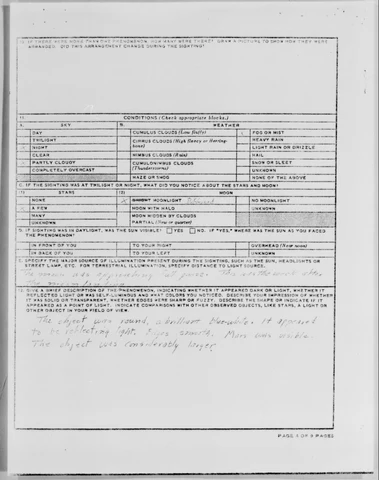 IF THERE WERE MORE THAN ONE PHENOMENON, HOW MANY WERE THERE? DRAW A PICTURE TO SHOW HOW THEY WERE
ARRANGED. DID THIS ARRANGEMENT CHANGE DURING THE SIGHTING?
CONDITIONS (Check appropriate blocks.)
A. SKY
B. WEATHER
DAY
CUMULUS CLOUDS (Low fluffy)
FOG OR MIST
TWILIGHT
CIRRUS CLOUDS (High fleecy or Herring-bone)
HEAVY RAIN
NIGHT
LIGHT RAIN OR DRIZZLE
CLEAR
NIMBUS CLOUDS (Rain)
HAIL
PARTLY CLOUDY
CUMULONIMBUS CLOUDS (Thunderstorms)
SNOW OR SLEET
COMPLETELY OVERCAST
UNKNOWN
HAZE OR SMOG
NONE OF THE ABOVE
C. IF THE SIGHTING WAS AT TWILIGHT OR NIGHT, WHAT DID YOU NOTICE ABOUT THE STARS AND MOON?
(1) STARS
(2) MOON
NONE
X BRIGHT MOONLIGHT
NO MOONLIGHT
A FEW
MOON WITH HALO
UNKNOWN
MANY
MOON HIDDEN BY CLOUDS
UNKNOWN
PARTIAL (New or quarter)
D. IF SIGHTING WAS IN DAYLIGHT, WAS THE SUN VISIBLE? YES NO. IF "YES," WHERE WAS THE SUN AS YOU FACED
THE PHENOMENON?
IN FRONT OF YOU
TO YOUR RIGHT
OVERHEAD (Near noon)
IN BACK OF YOU
TO YOUR LEFT
UNKNOWN
SPECIFY THE MAJOR SOURCE OF ILLUMINATION PRESENT DURING THE SIGHTING, SUCH AS THE SUN, HEADLIGHTS OR
STREET LAMP, ETC. FOR TERRESTRIAL ILLUMINATION, SPECIFY DISTANCE TO LIGHT SOURCE.
The moon was
GIVE A BRIEF DESCRIPTION OF THE PHENOMENON, INDICATING WHETHER IT APPEARED DARK OR LIGHT, WHETHER IT
REFLECTED LIGHT OR WAS SELF-LUMINOUS AND WHAT COLORS YOU NOTICED. DESCRIBE YOUR IMPRESSION OF WHETHER
IT WAS SOLID OR TRANSPARENT, WHETHER EDGES WERE SHARP OR FUZZY. DESCRIBE THE SHAPE OR INDICATE IF IT
APPEARED AS A POINT OF LIGHT. INDICATE COMPARISONS WITH OTHER OBSERVED OBJECTS, LIKE STARS, A LIGHT OR
OTHER OBJECT IN YOUR FIELD OF VIEW.
The object was round, a brilliant It appeared
to be reflecting light. Edges Mars was visible.
The object was considerably larger